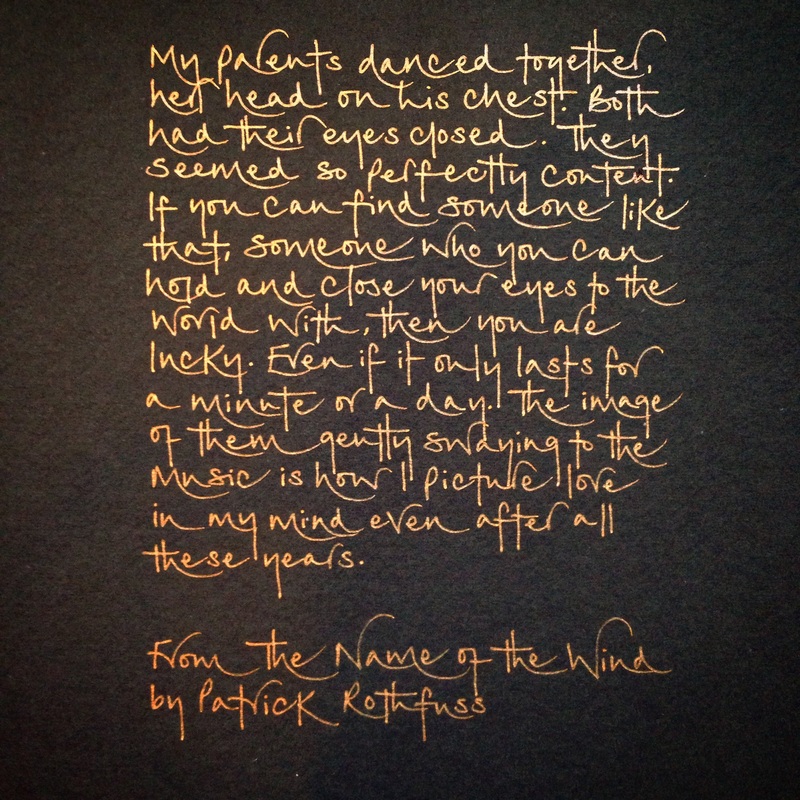 My parents danced together,
her head on his chest. Both
had their eyes closed. They
seemed so perfectly content.
If you can find someone like
that, someone who you can
hold and close your eyes to the
world with, then you are
lucky. Even if it only lasts for
a minute or a day. The image
of them gently swaying to the
music is how I picture love
in my mind even after all
these years.
From the Name of the Wind
by Patrick Rothfuss